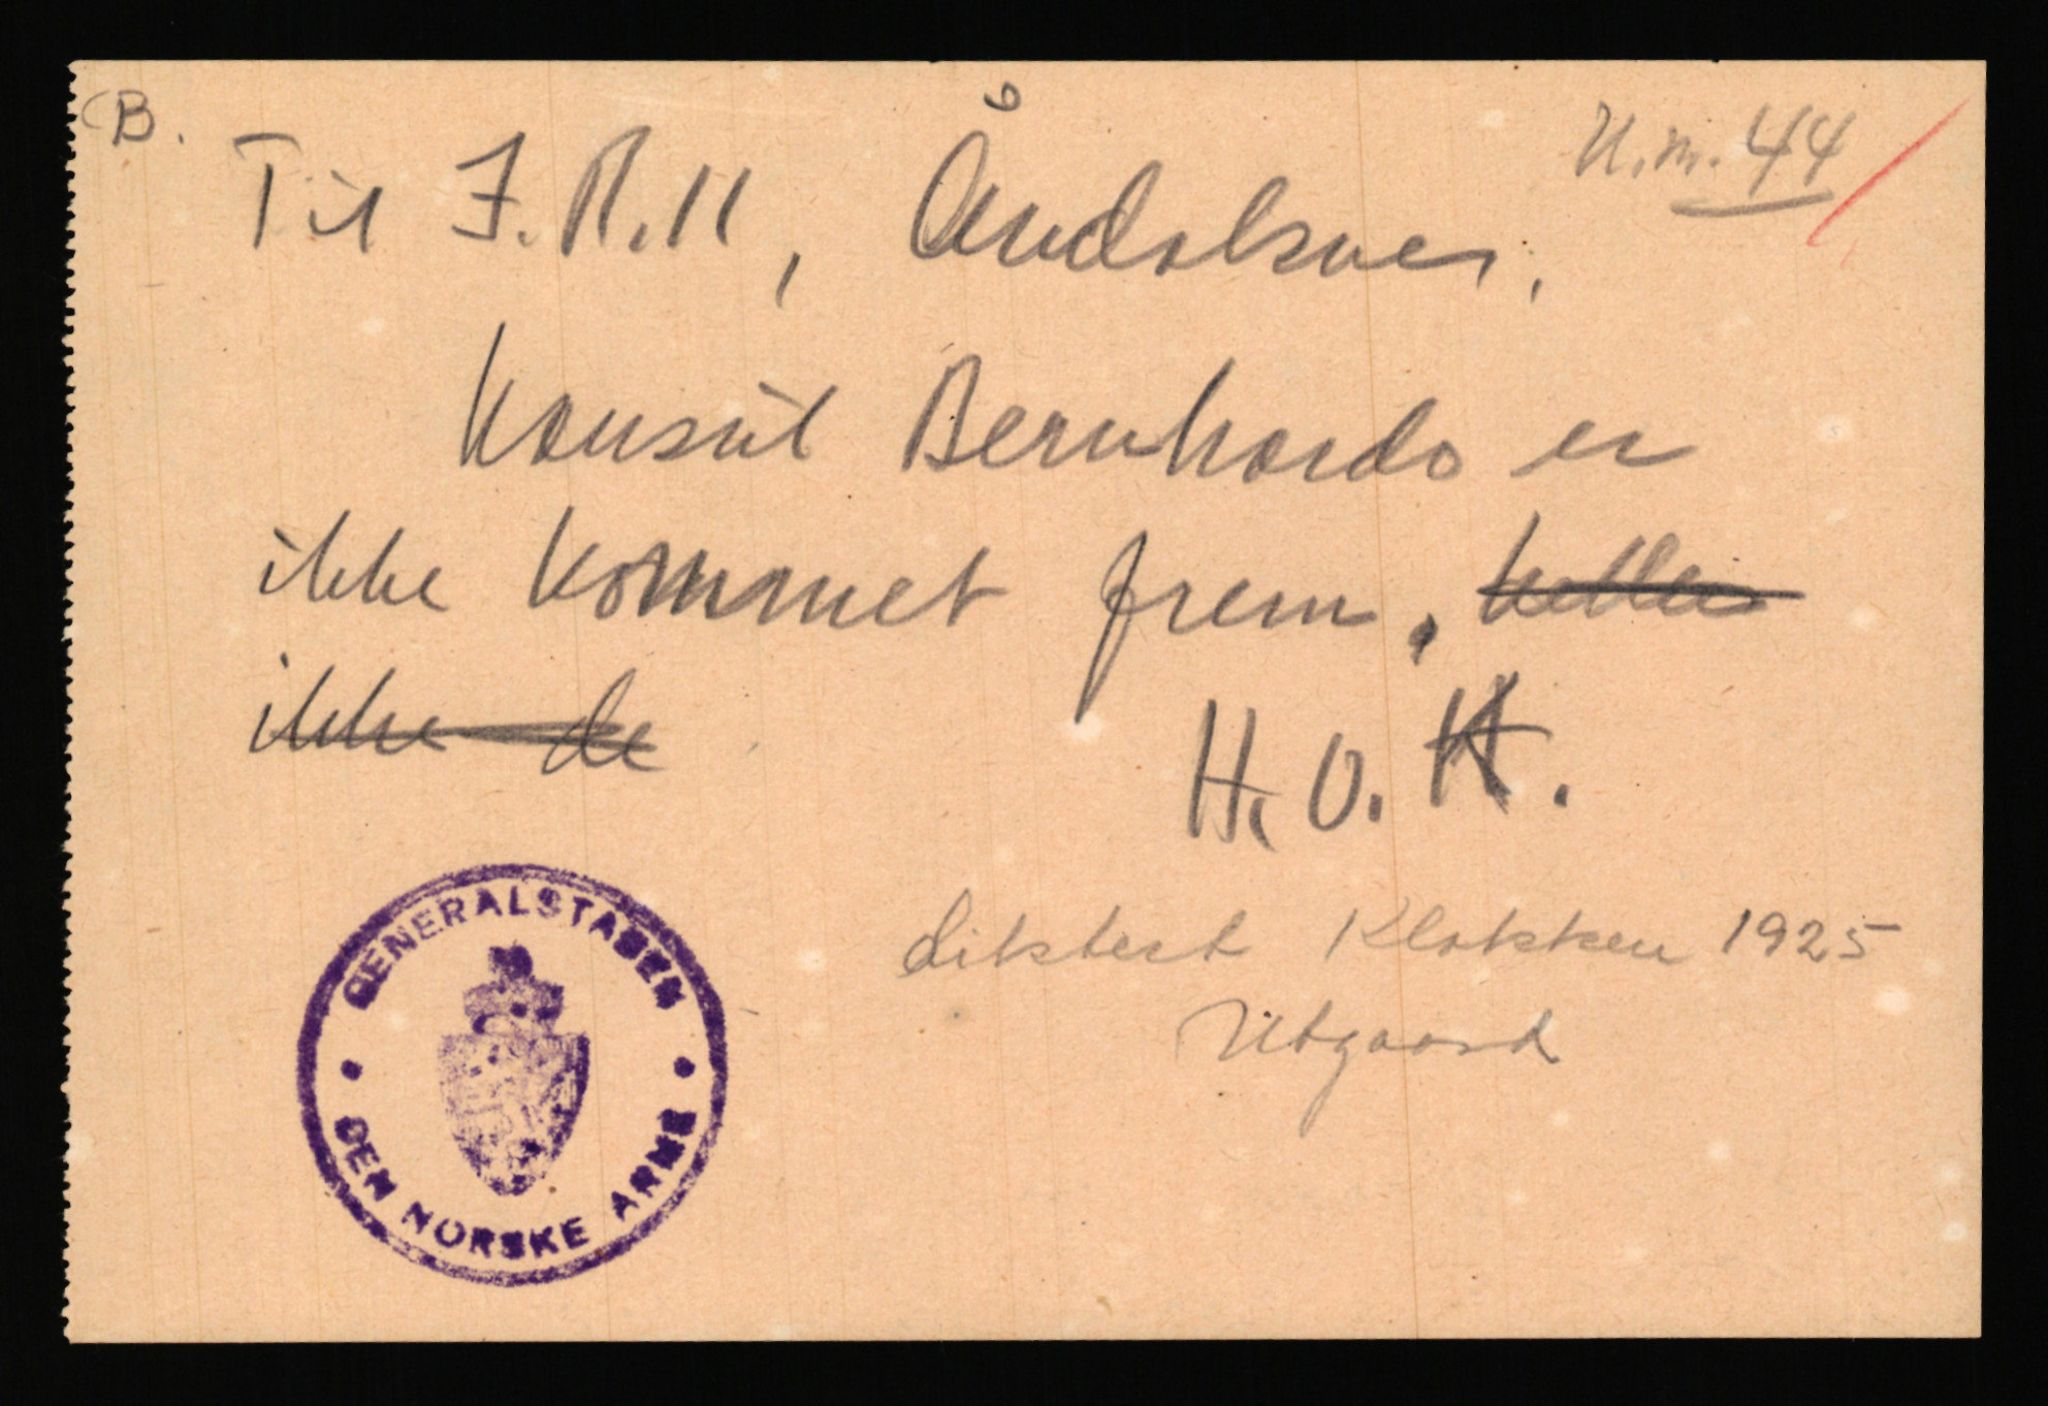 B.
U.m. 44
Til I.R.11, Åndalsnes.
Konsul Bernhardo er
ikke kommet frem. heller
ikke de
H.O.K.
diktert Klokken 1925
Utgaard
GENERALSTABEN
DEN NORSKE ARME